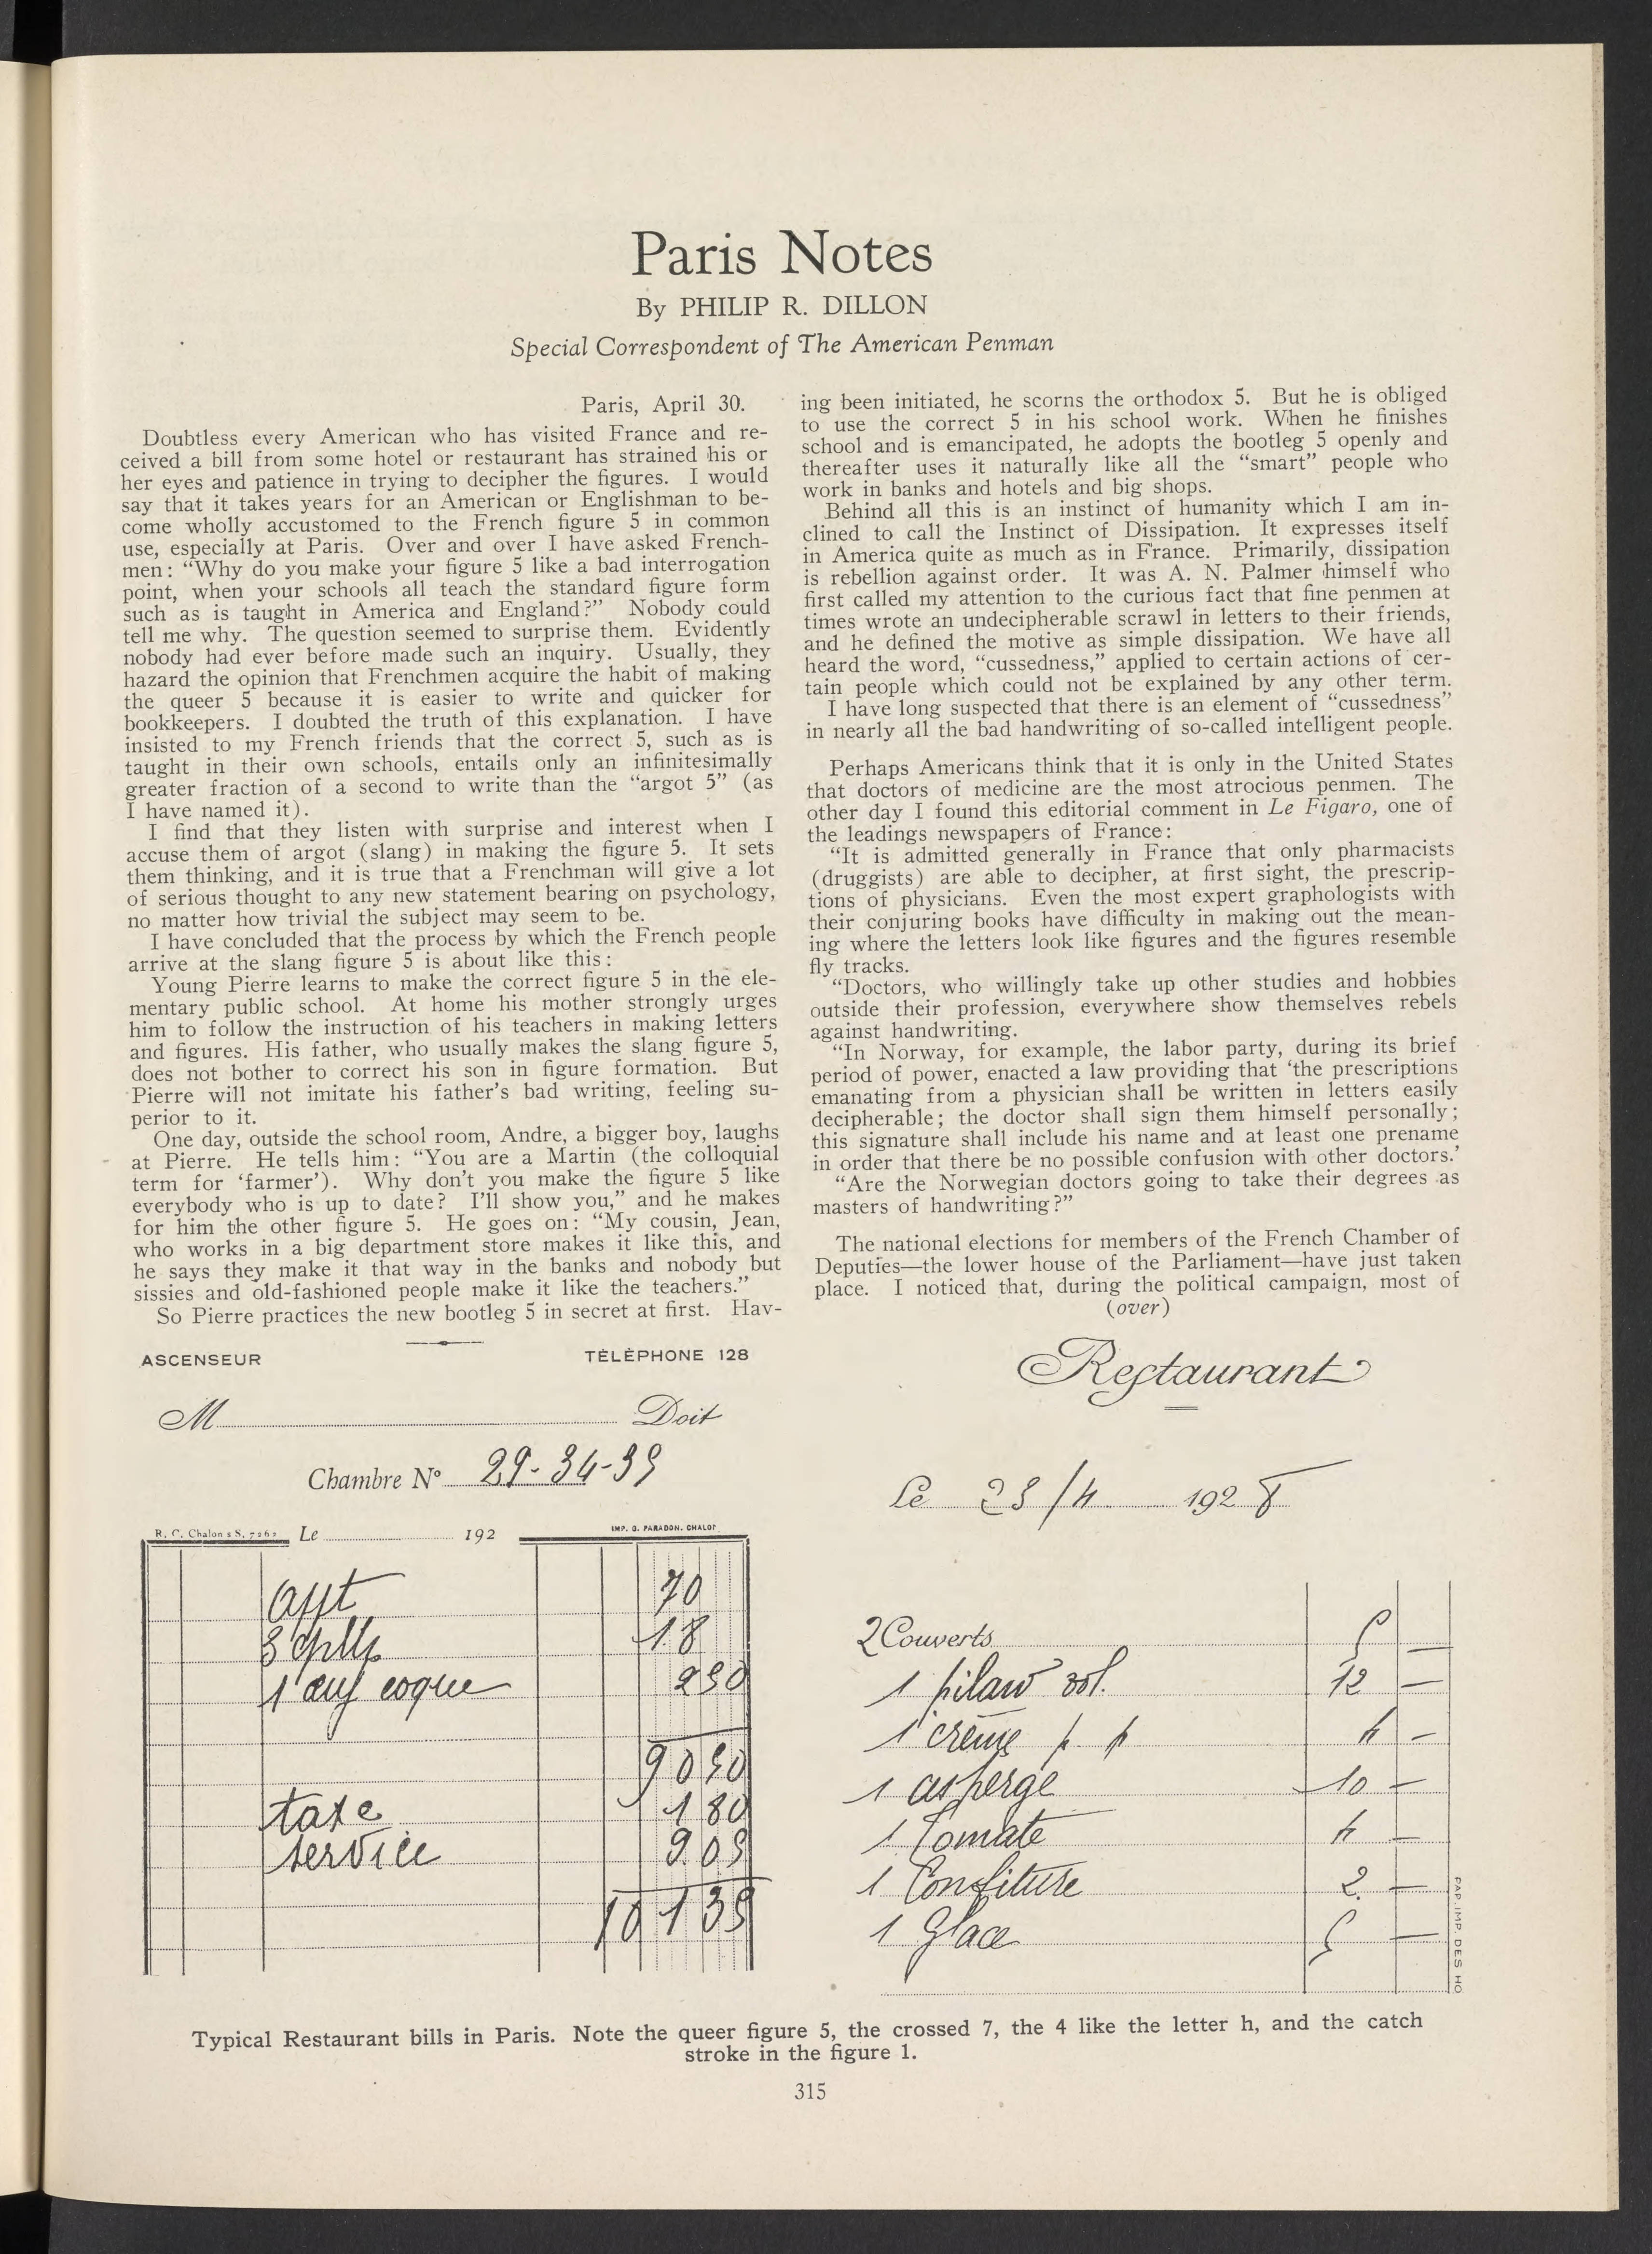 Paris Notes
By PHILIP R. DILLON
Special Correspondent of The American Penman
Paris, April 30.
Doubtless every American who has visited France and re-
ceived a bill from some hotel or restaurant has strained his or
her eyes and patience in trying to decipher the figures. I would
say that it takes years for an American or Englishman to be-
come wholly accustomed to the French figure 5 in common
use, especially at Paris. Over and over I have asked French-
men: “Why do you make your figure 5 like a bad interrogation
point, when your schools all teach the standard figure form
such as is taught in America and England?” Nobody could
tell me why. The question seemed to surprise them. Evidently
nobody had ever before made such an inquiry. Usually, they
hazard the opinion that Frenchmen acquire the habit of making
the queer 5 because it is easier to write and quicker for
bookkeepers. I doubted the truth of this explanation. I have
insisted to my French friends that the correct 5, such as is
taught in their own schools, entails only an infinitesimally
greater fraction of a second to write than the “argot 5” (as
I have named it).
I find that they listen with surprise and interest when I
accuse them of argot (slang) in making the figure 5. It sets
them thinking, and it is true that a Frenchman will give a lot
of serious thought to any new statement bearing on psychology,
no matter how trivial the subject may seem to be.
I have concluded that the process by which the French people
arrive at the slang figure 5 is about like this:
Young Pierre learns to make the correct figure 5 in the ele-
mentary public school. At home his mother strongly urges
him to follow the instruction of his teachers in making letters
and figures. His father, who usually makes the slang figure 5,
does not bother to correct his son in figure formation. But
Pierre will not imitate his father’s bad writing, feeling su-
perior to it.
One day, outside the school room, Andre, a bigger boy, laughs
at Pierre. He tells him: “You are a Martin (the colloquial
term for ‘farmer’). Why don’t you make the figure 5 like
everybody who is up to date? I’ll show you,” and he makes
for him the other figure 5. He goes on: “My cousin, Jean,
who works in a big department store makes it like this, and
he says they make it that way in the banks and nobody but
sissies and old-fashioned people make it like the teachers.”
So Pierre practices the new bootleg 5 in secret at first. Hav-
ing been initiated, he scorns the orthodox 5. But he is obliged
to use the correct 5 in his school work. When he finishes
school and is emancipated, he adopts the bootleg 5 openly and
thereafter uses it naturally like all the “smart” people who
work in banks and hotels and big shops.
Behind all this is an instinct of humanity which I am in-
clined to call the Instinct of Dissipation. It expresses itself
in America quite as much as in France. Primarily, dissipation
is rebellion against order. It was A. N. Palmer himself who
first called my attention to the curious fact that fine penmen at
times wrote an undecipherable scrawl in letters to their friends,
and he defined the motive as simple dissipation. We have all
heard the word, “cussedness,” applied to certain actions of cer-
tain people which could not be explained by any other term.
I have long suspected that there is an element of “cussedness”
in nearly all the bad handwriting of so-called intelligent people.
Perhaps Americans think that it is only in the United States
that doctors of medicine are the most atrocious penmen. The
other day I found this editorial comment in Le Figaro, one of
the leadings newspapers of France:
“It is admitted generally in France that only pharmacists
(druggists) are able to decipher, at first sight, the prescrip-
tions of physicians. Even the most expert graphologists with
their conjuring books have difficulty in making out the mean-
ing where the letters look like figures and the figures resemble
fly tracks.
“Doctors, who willingly take up other studies and hobbies
outside their profession, everywhere show themselves rebels
against handwriting.
“In Norway, for example, the labor party, during its brief
period of power, enacted a law providing that ‘the prescriptions
emanating from a physician shall be written in letters easily
decipherable; the doctor shall sign them himself personally;
this signature shall include his name and at least one prename
in order that there be no possible confusion with other doctors.’
“Are the Norwegian doctors going to take their degrees as
masters of handwriting?”
The national elections for members of the French Chamber of
Deputies—the lower house of the Parliament—have just taken
place. I noticed that, during the political campaign, most of
(over)
ASCENSEUR TÉLÉPHONE 128
M Doit
Chambre N° 29-34-35
Le 192
IMP. G. PARADON. CHALOT
appt 70
18
1 œuf coque 250
9050
taxe 180
service 905
10135
Restaurant
Le 25/4 1928
2 Couverts 5 —
1 pilaw 12 —
1 crème p. p 4 —
1 asperge 10 —
1 Tomate 4 —
1 Confiture 2 —
1 Glace 5 —
PAP. IMP. DES HO
Typical Restaurant bills in Paris. Note the queer figure 5, the crossed 7, the 4 like the letter h, and the catch
stroke in the figure 1.
315